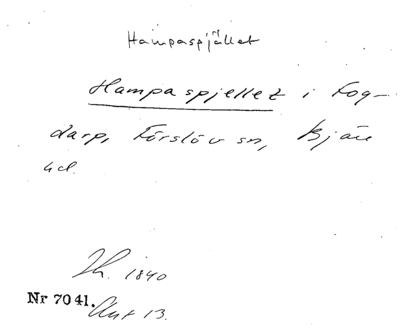 Hampaspjället
Hampaspjellet i Fog-
darp, Förslöv sn, Bjäre
hd.
Lh. 1840
Nr 7041. Akt 13.